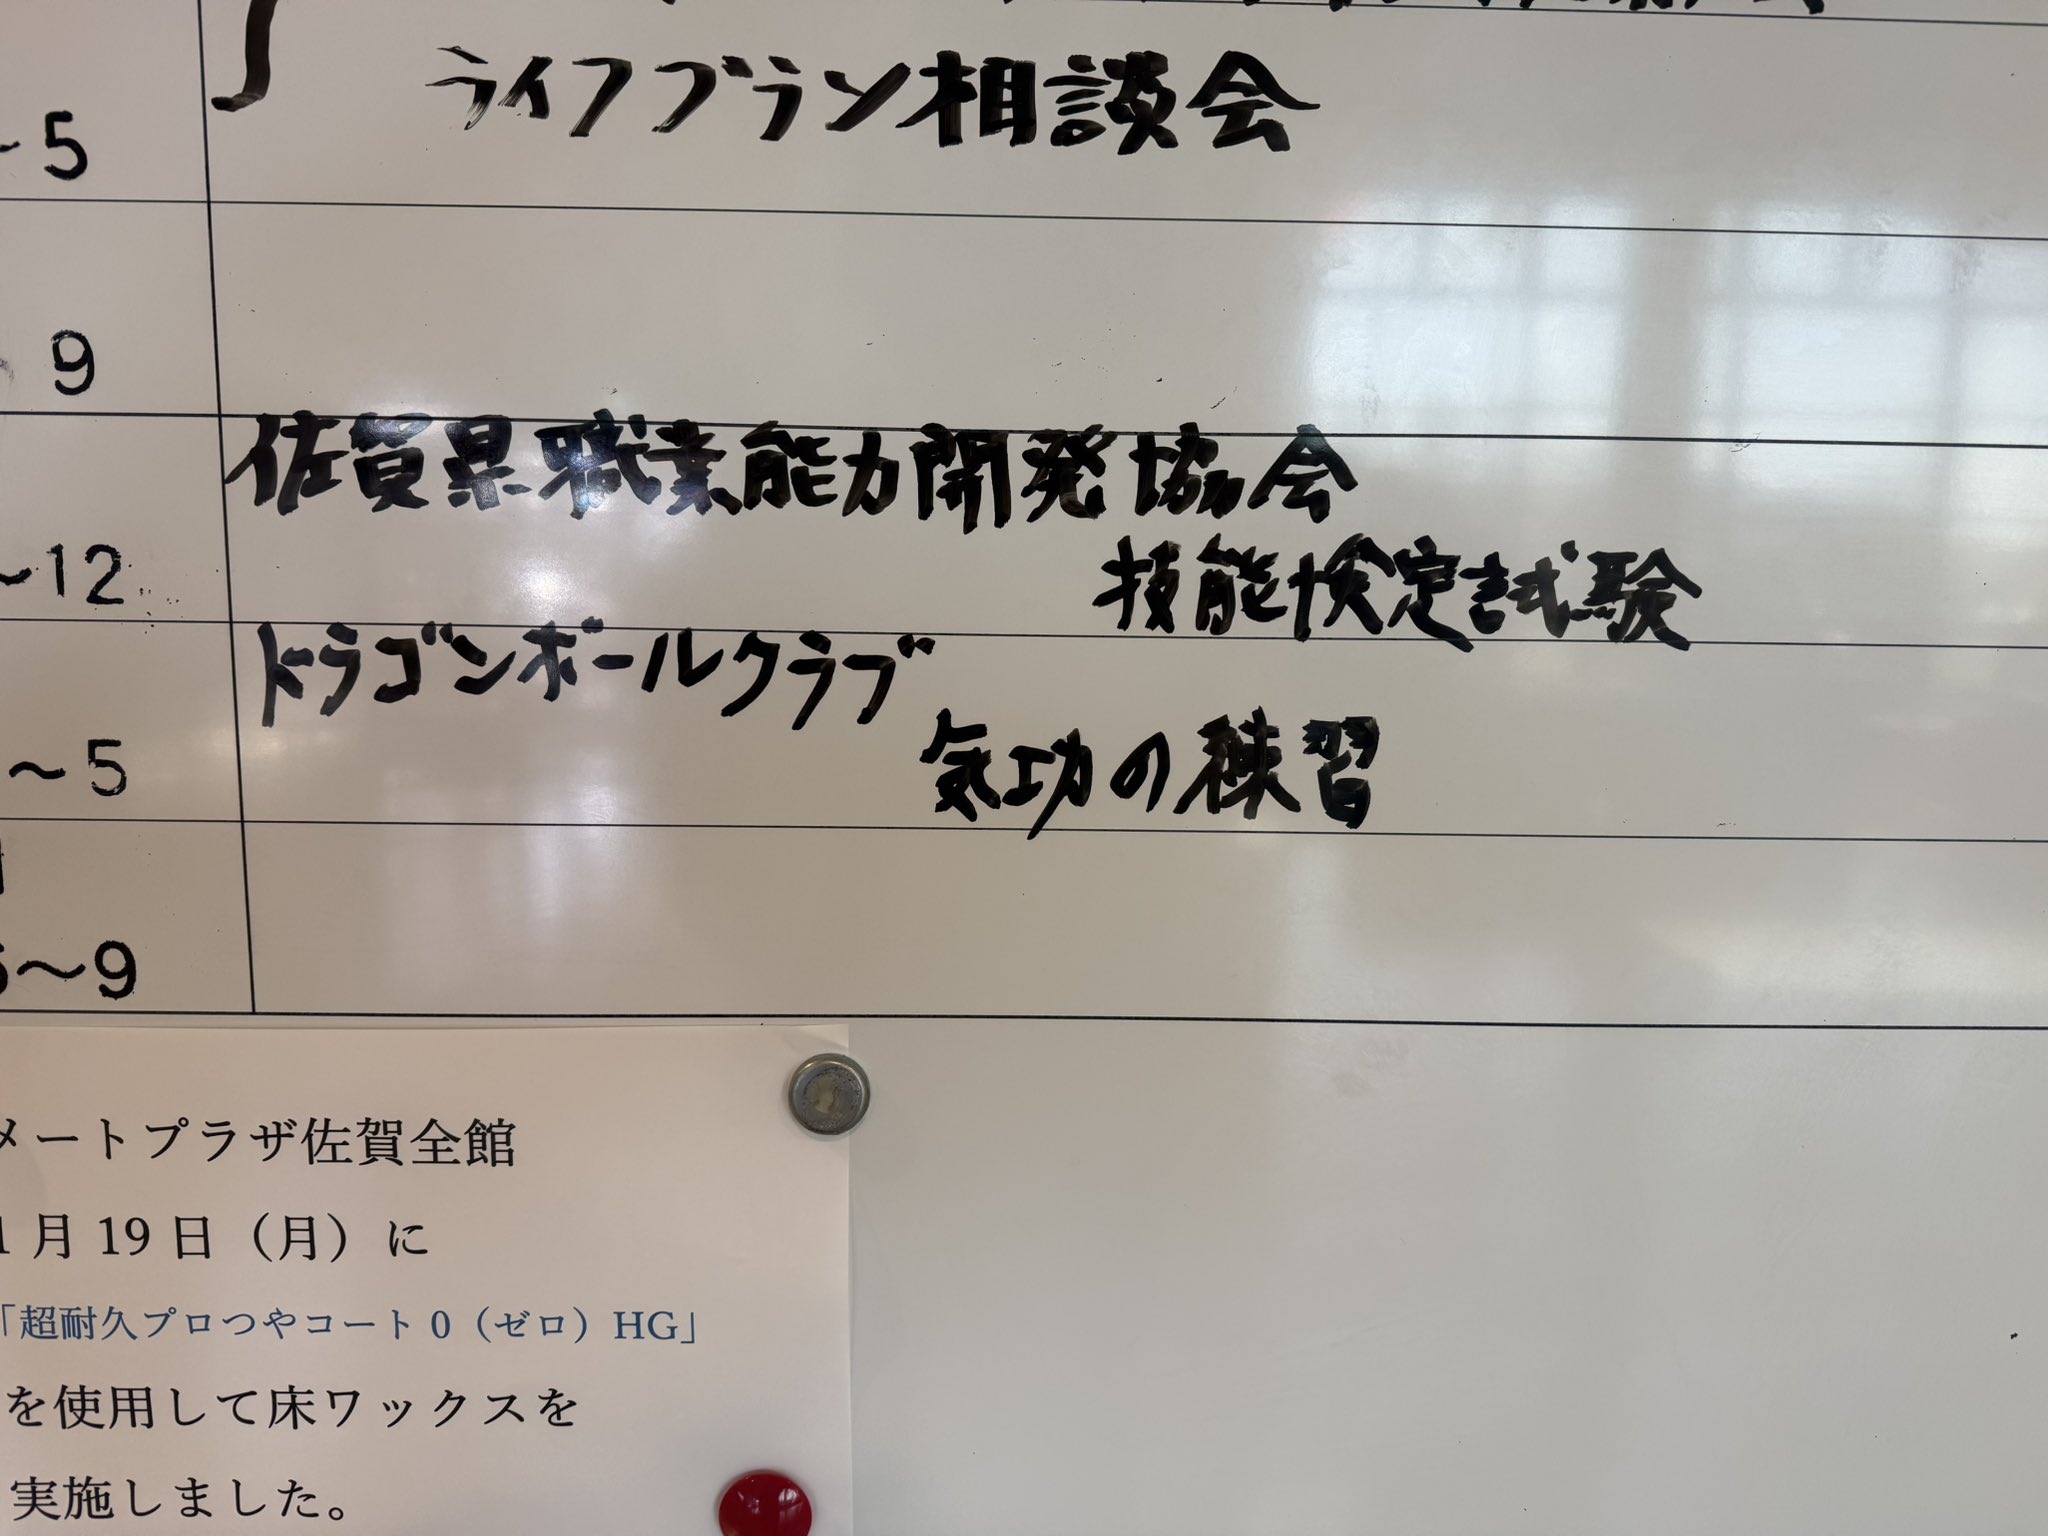 ライフプラン相談会
~5
9
佐賀県職業能力開発協会
技能検定試験
~12
ドラゴンボールクラブ
気功の練習
~5
~9
メートプラザ佐賀全館
1月19日（月）に
「超耐久プロつやコート0（ゼロ）HG」
を使用して床ワックスを
実施しました。